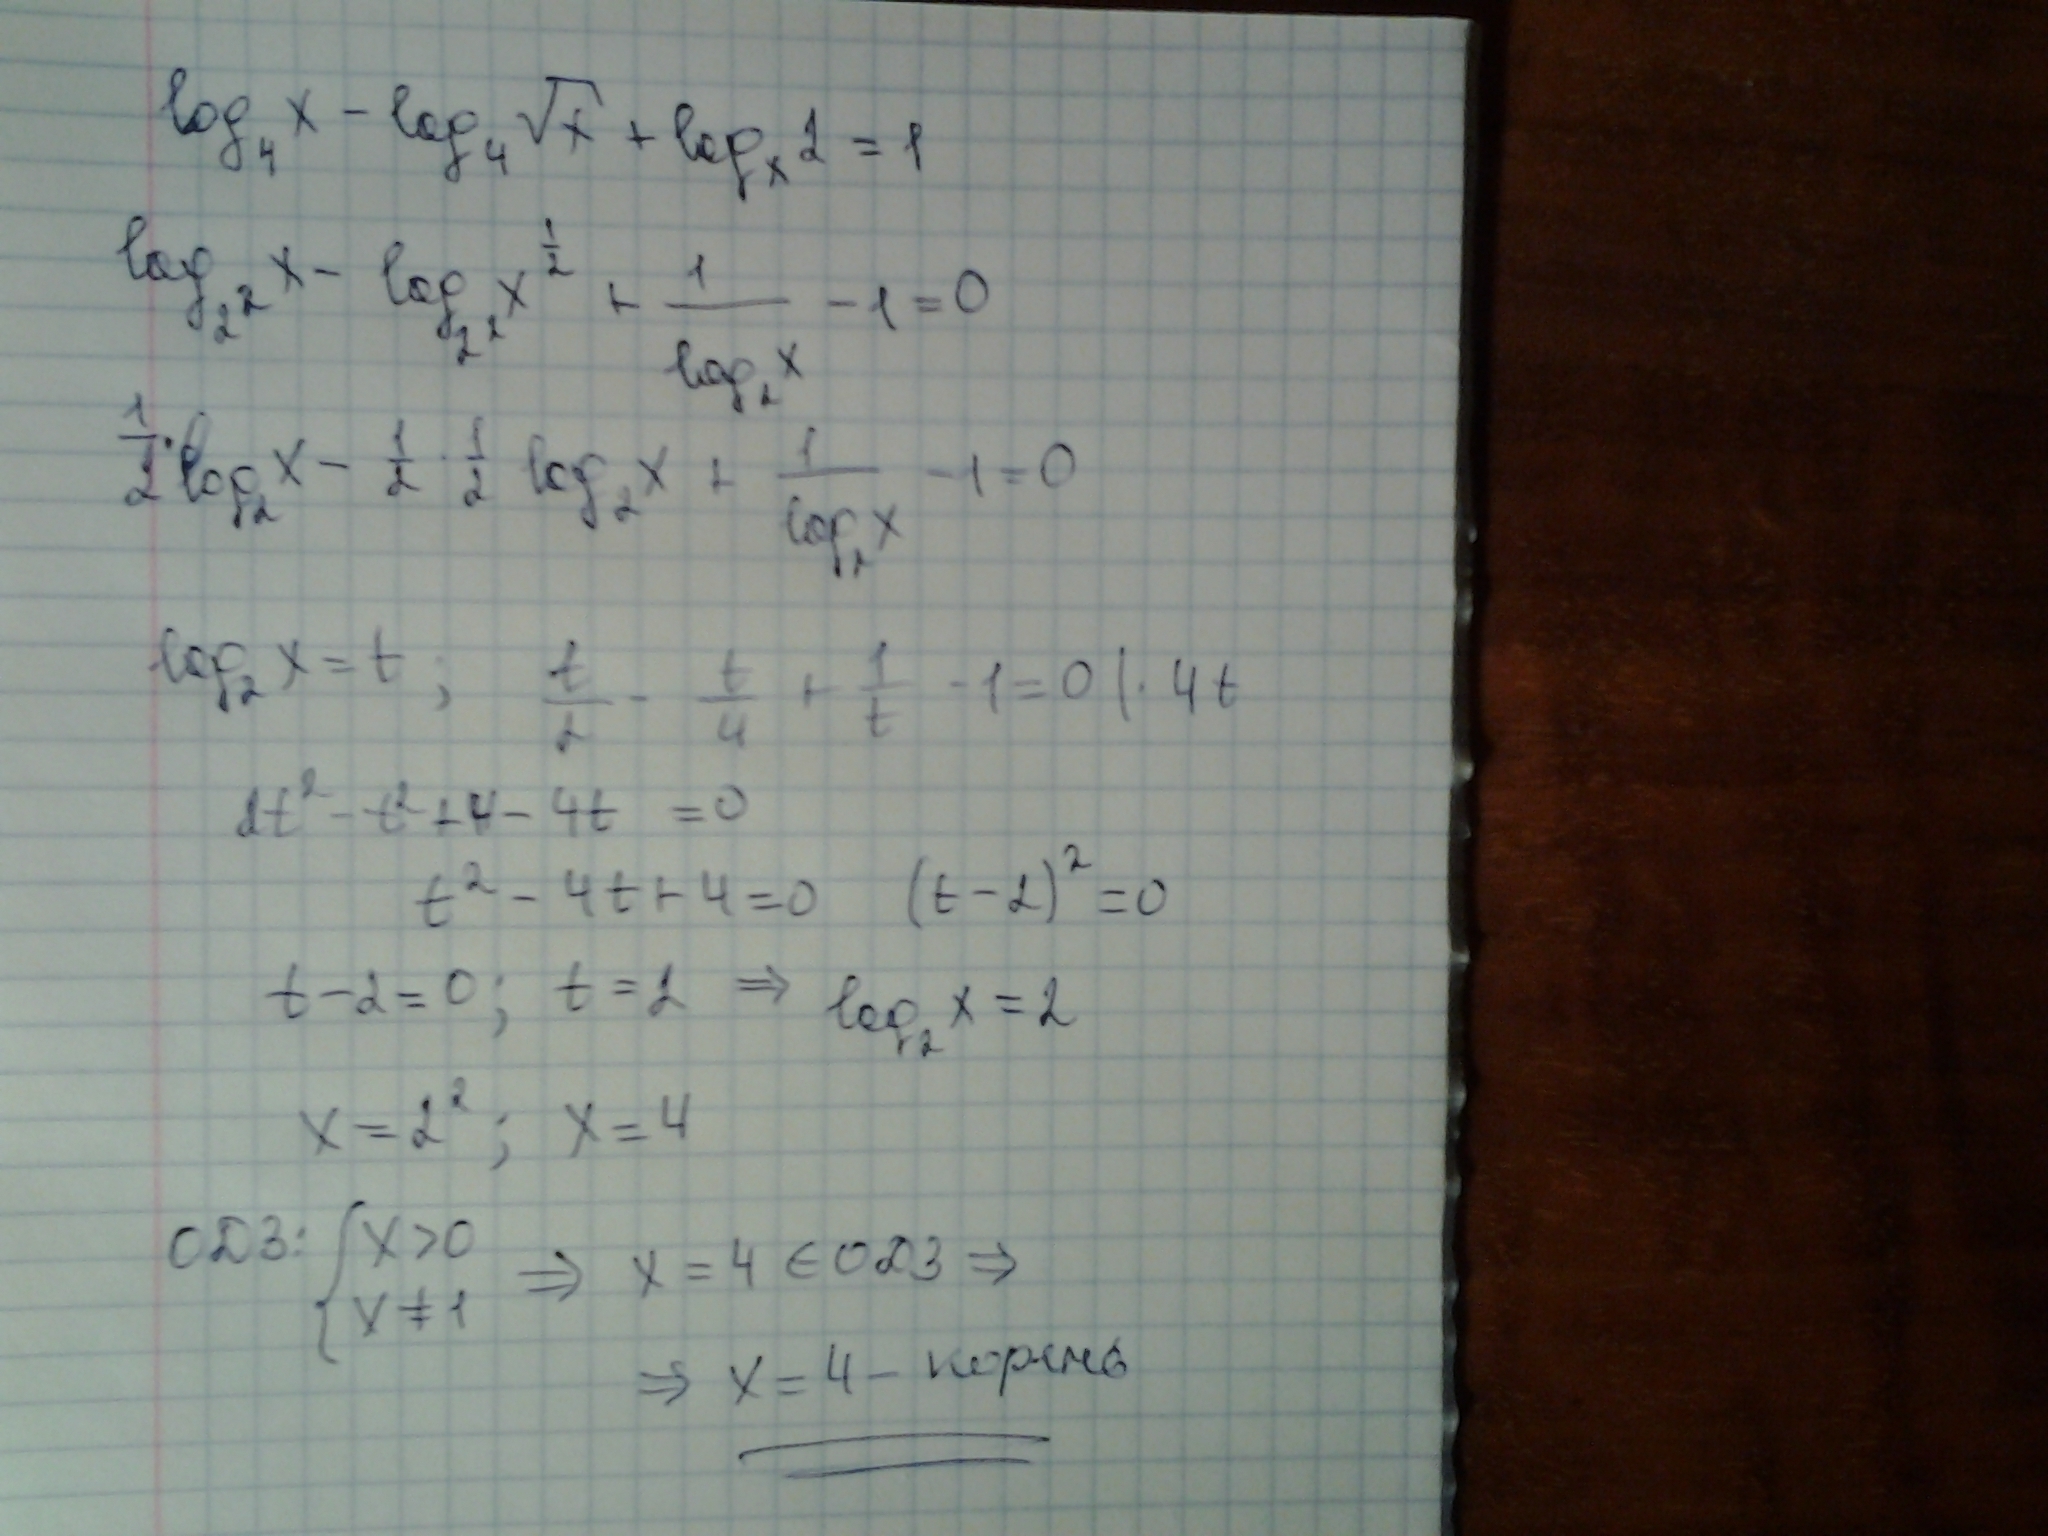 log₄ x − log₄ √x + logₓ 2 = 1
log_{2²} x − log_{2²} x^{1/2} + 1/(log₂ x) − 1 = 0
1/2 · log₂ x − 1/2 · 1/2 log₂ x + 1/(log₂ x) − 1 = 0
log₂ x = t ; t/2 − t/4 + 1/t − 1 = 0 | · 4t
2t² − t² + 4 − 4t = 0
t² − 4t + 4 = 0 (t − 2)² = 0
t − 2 = 0 ; t = 2 ⇒ log₂ x = 2
x = 2² ; x = 4
ОДЗ: { x > 0
x ≠ 1 ⇒ x = 4 ∈ ОДЗ ⇒
⇒ x = 4 − корень